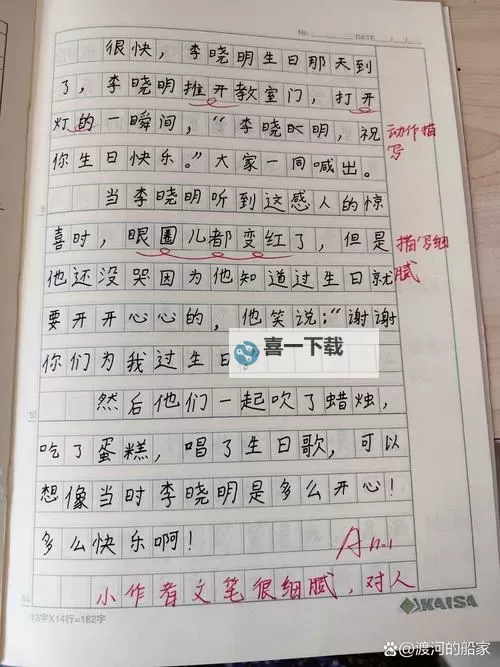 No. DATE
很快，李晓明生日那天到
了，李晓明推开教室门，打开
灯的一瞬间，“李晓明，祝
动作描写
你生日快乐。”大家一同喊出。
5
当李晓明听到这感人的惊
喜时，眼圈儿都变红了，但是
描写细腻
他还没哭因为他知道过生日就
要开开心心的，他笑说：“谢谢
你们为我过生日
喜一下载
10
然后他们一起吹了蜡烛，
吃了蛋糕，唱了生日歌，可以
想像当时李晓明是多么开心！
多么快乐啊！
小作者文笔很细腻，对人
14
13字X14行=182字
KAISA
@渡河的船家